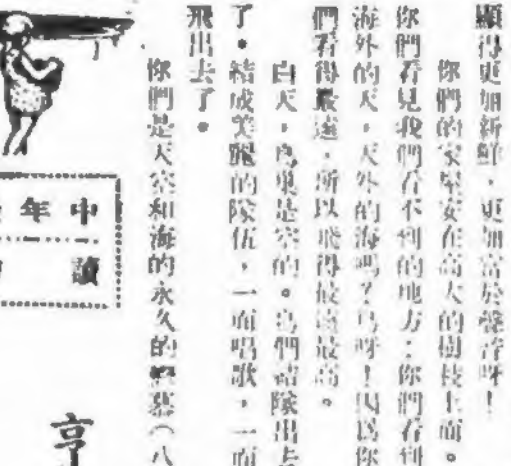 顯得更加新鮮，更加富於聲音呀！
你們的家屋安在高大的樹枝上面。
你們看見我們看不到的地方；你們看到
海外的天，天外的海嗎？鳥呀！因爲你
們看得最遠，所以飛得最遠最高。
白天，鳥巢是空的。鳥們結隊出去
了。結成美麗的隊伍，一面唱歌，一面
飛出去了。
你們是天空和海的永久的戀慕（八
中年
讀
亨